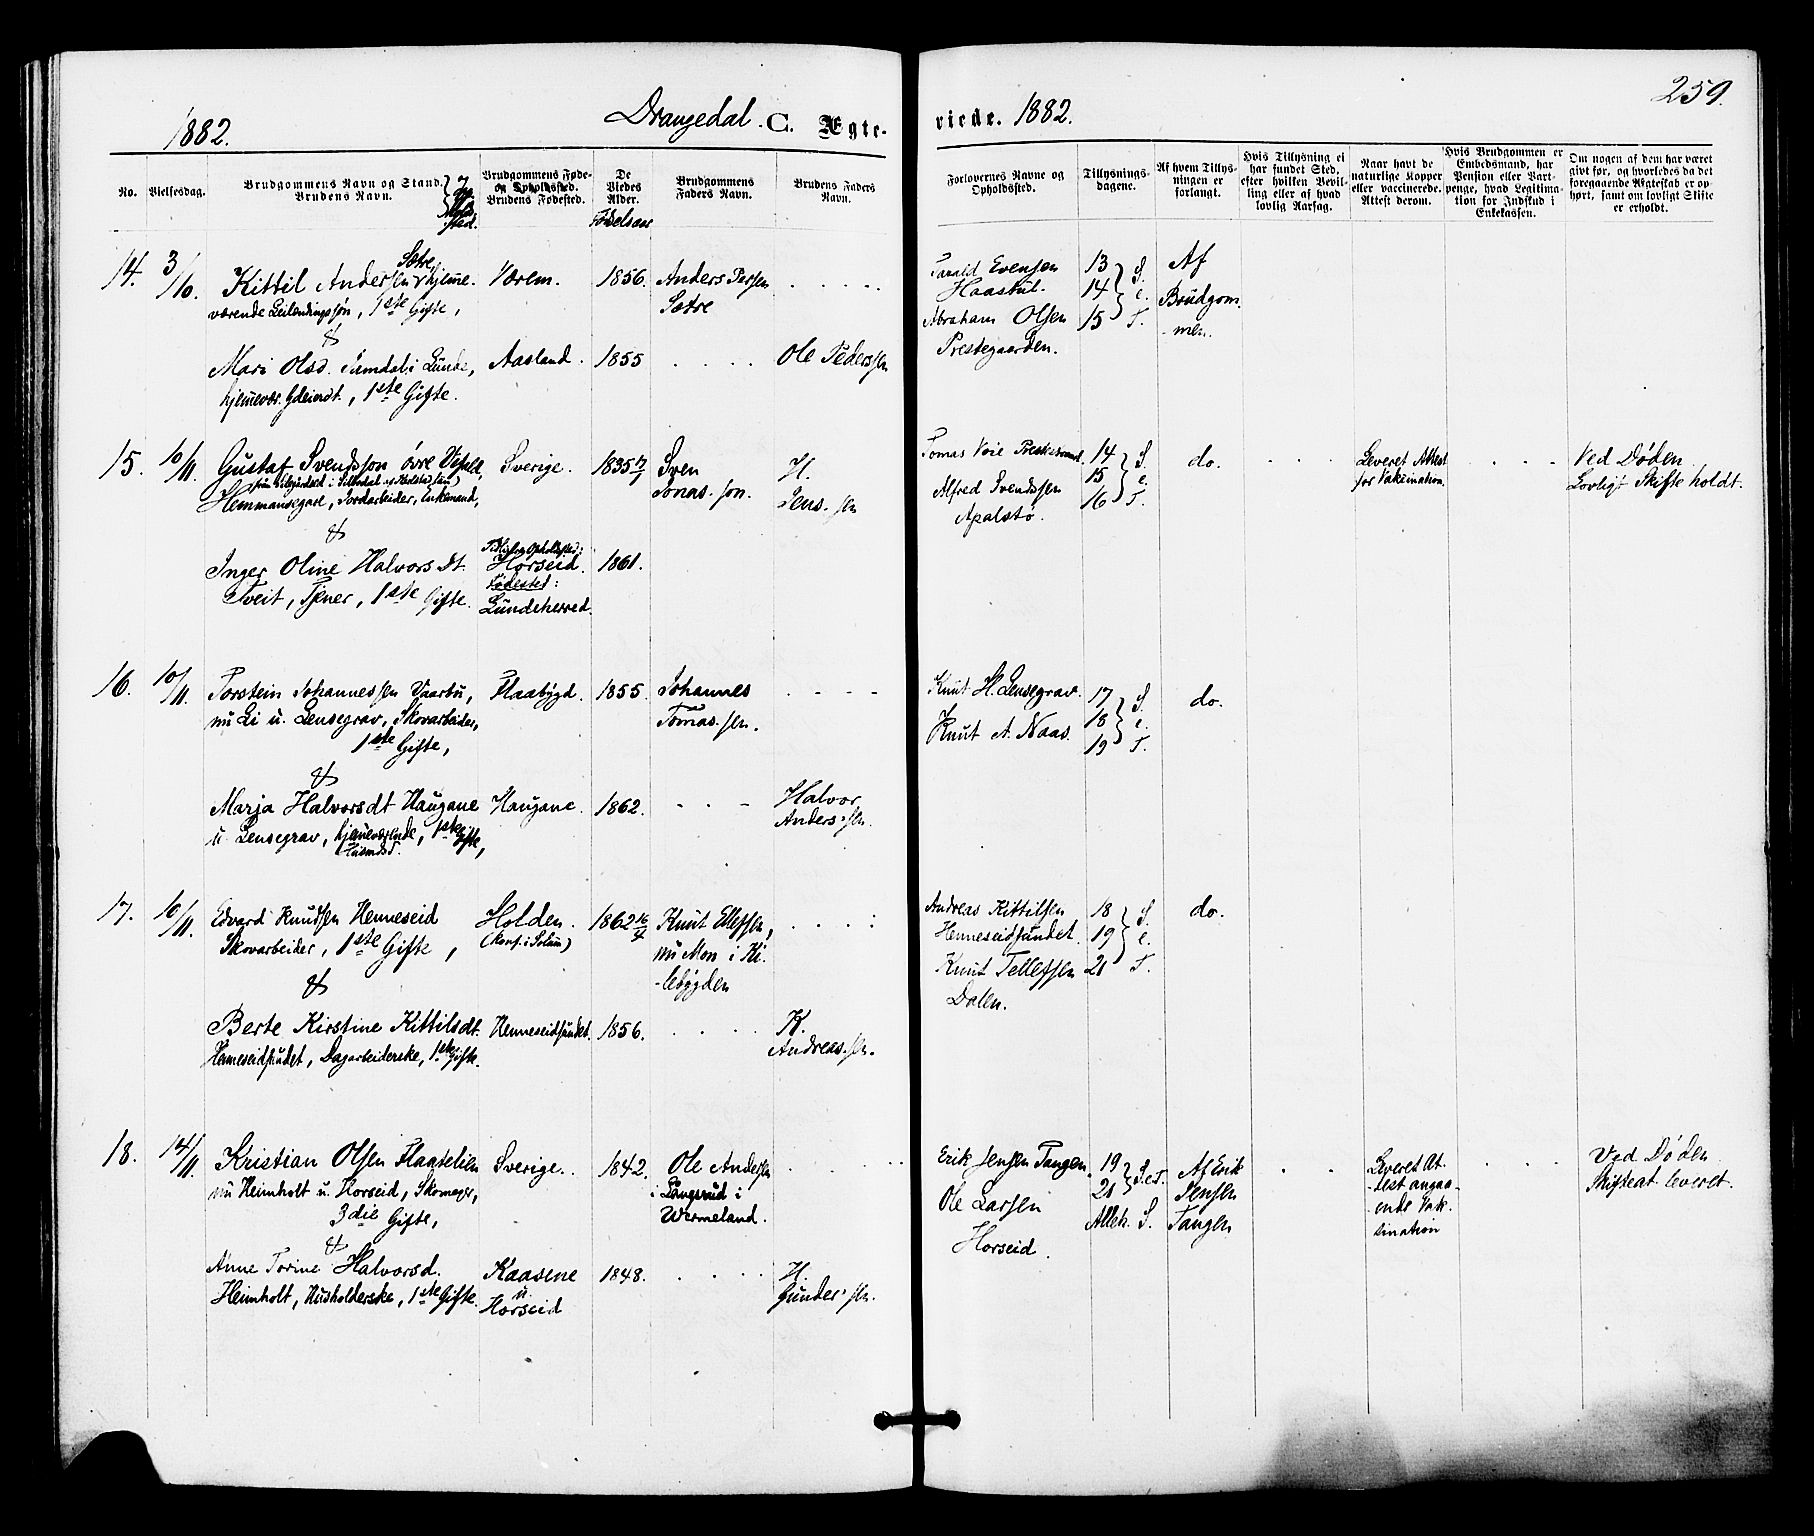 1882.
Drangedal. C. Ægte-
viede. 1882.
259.
No.
Vielsesdag.
Brudgommens Navn og Stand.
Brudens Navn.
Brudgommens Føde-
og Opholdssted.
Brudens Fødested.
De
Viedes
Alder.
Fødselsaar
Brudgommens
Faders Navn.
Brudens Faders
Navn.
Forlovernes Navne og
Opholdssted.
Tillysnings-
dagene.
Af hvem Tillys-
ningen er
forlangt.
Hvis Tillysning ei
har fundet Sted,
efter hvilken Bevil-
ling eller af hvad
lovlig Aarsag.
Naar havt de
naturlige Kopper
eller vaccinerede.
Attest derom.
Hvis Brudgommen er
Embedsmand, har
Pension eller Vart-
penge, hvad Legitima-
tion for Indskud i
Enkekassen.
Om nogen af dem har været
givt før, og hvorledes da det
foregaaende Ægteskab er op-
hørt, samt om lovligt Skifte
er erholdt.
14. 3/10.
Sætre
Kittil Andersen hjemme-
værende Leilendingssøn, 1ste Gifte,
&
Mari Olsd. i Lunde,
hjemmevær. Gdeierdt., 1ste Gifte.
Værem.
Aasland.
1856.
1855
Anders Persen
Sætre
Ole Pederssen
Tarald Evensen
Haastul.
Abraham Olsen
Prestegaarden.
13
14 S. e. T.
15
Af
Brudgom-
men.
15. 10/11.
Gustaf Svendsson øvre
Hemmansegare, Jordarbeider, Enkemand,
&
Inger Oline Halvorsdt.
Tveit, Tjener, 1ste Gifte.
Sverige.
Horseid.
Fødested:
Lundeherred.
1835
1861.
Sven
Jonas.son
H.
Jens.sen
Tomas Voie
Alfred Svendssen
Apalstø.
14
15 S. e. T.
16
do.
Leveret Attest
for Vaksination.
Ved Døden.
Lovligt Skifte holdt.
16. 10/11.
Torstein Johannessen Vaarbu,
nu Li u. Lensegrav, Skovarbeider,
1ste Gifte,
&
Marja Halvorsdt Haugane
u. Lensegrav, hjemmeværende, 1ste Gifte,
Flaabygd.
Haugane.
1855.
1862.
Johannes
Tomas.sen.
Halvor
Anders.sen.
Knut H. Lensegrav.
Knut A. Naas.
17
18 S. e. T.
19
do.
17. 16/11.
Edvard Knudsen Henneseid
Skovarbeider, 1ste Gifte,
&
Berte Kirstine Kittilsdt.
Henneseidsundet, Dagarbeiderske, 1ste Gifte.
Holden.
(Konf. i Solum)
Henneseidsundet.
1862 16/4
1856.
Knut Ellefsen,
nu Moen i Ki-
lebygden
K.
Andreas.sen.
Andreas Kittilsen
Henneseidsundet.
Knut Tellefsen
Dalen.
18
19 S. e. T.
21
do.
18. 14/11.
Kristian Olsen Flaatelien
nu Heimholt u. Horseid, Skomager,
3die Gifte,
&
Anne Torine Halvorsd.
Heimholt, Husholderske, 1ste Gifte.
Sverige.
Kaasene
u.
Horseid
1842.
1848.
Ole Andersen
i Langerud i
Wermeland.
H.
Gunder.sen.
Erik Jensen Tangen.
Ole Larsen
Horseid.
19
21 S.e.T.
Alleh. S.
Af Erik
Jensen
Tangen
Leveret At-
test angaa-
ende Vak-
sination
Ved Døden
Skifteat. leveret.